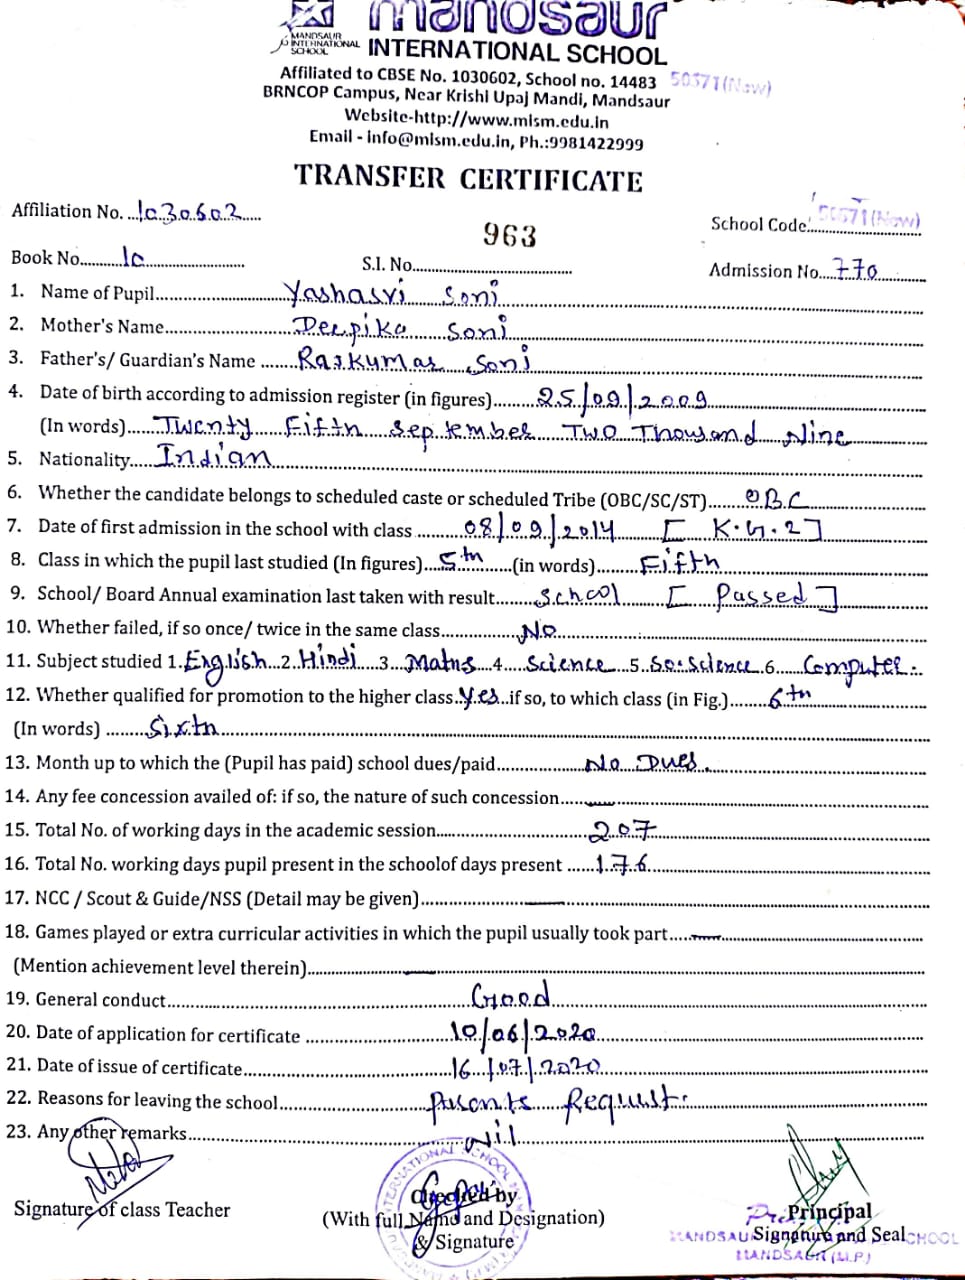 mandsaur
MANDSAUR
INTERNATIONAL
SCHOOL
INTERNATIONAL SCHOOL
Affiliated to CBSE No. 1030602, School no. 14483 50371(New)
BRNCOP Campus, Near Krishi Upaj Mandi, Mandsaur
Website-http://www.mism.edu.in
Email - info@mism.edu.in, Ph.:9981422999
TRANSFER CERTIFICATE
Affiliation No. 1030602
963
School Code 50371(New)
Book No. 10
S.I. No.
Admission No. 770
1. Name of Pupil Yashasvi Soni
2. Mother's Name Deepika Soni
3. Father's/ Guardian's Name Rajkumar Soni
4. Date of birth according to admission register (in figures) 25/09/2009
(In words) Twenty Fifth September Two Thousand Nine
5. Nationality Indian
6. Whether the candidate belongs to scheduled caste or scheduled Tribe (OBC/SC/ST) OBC
7. Date of first admission in the school with class 08/09/2014 [K.G.2]
8. Class in which the pupil last studied (In figures) 5th (in words) Fifth
9. School/ Board Annual examination last taken with result School [Passed]
10. Whether failed, if so once/ twice in the same class No
11. Subject studied 1. English 2. Hindi 3 Maths 4 Science 5 So.Science 6 Computer.
12. Whether qualified for promotion to the higher class Yes if so, to which class (in Fig.) 6th
(In words) Sixth
13. Month up to which the (Pupil has paid) school dues/paid No Dues.
14. Any fee concession availed of: if so, the nature of such concession —
15. Total No. of working days in the academic session 207
16. Total No. working days pupil present in the schoolof days present 176
17. NCC / Scout & Guide/NSS (Detail may be given) —
18. Games played or extra curricular activities in which the pupil usually took part —
(Mention achievement level therein) —
19. General conduct Good
20. Date of application for certificate 10/06/2020
21. Date of issue of certificate 16/07/2020
22. Reasons for leaving the school Parents Request.
23. Any other remarks Nil
Signature of class Teacher
Checked by
(With full Name and Designation)
& Signature
Principal
Signature and Seal
MANDSAUR (M.P.)